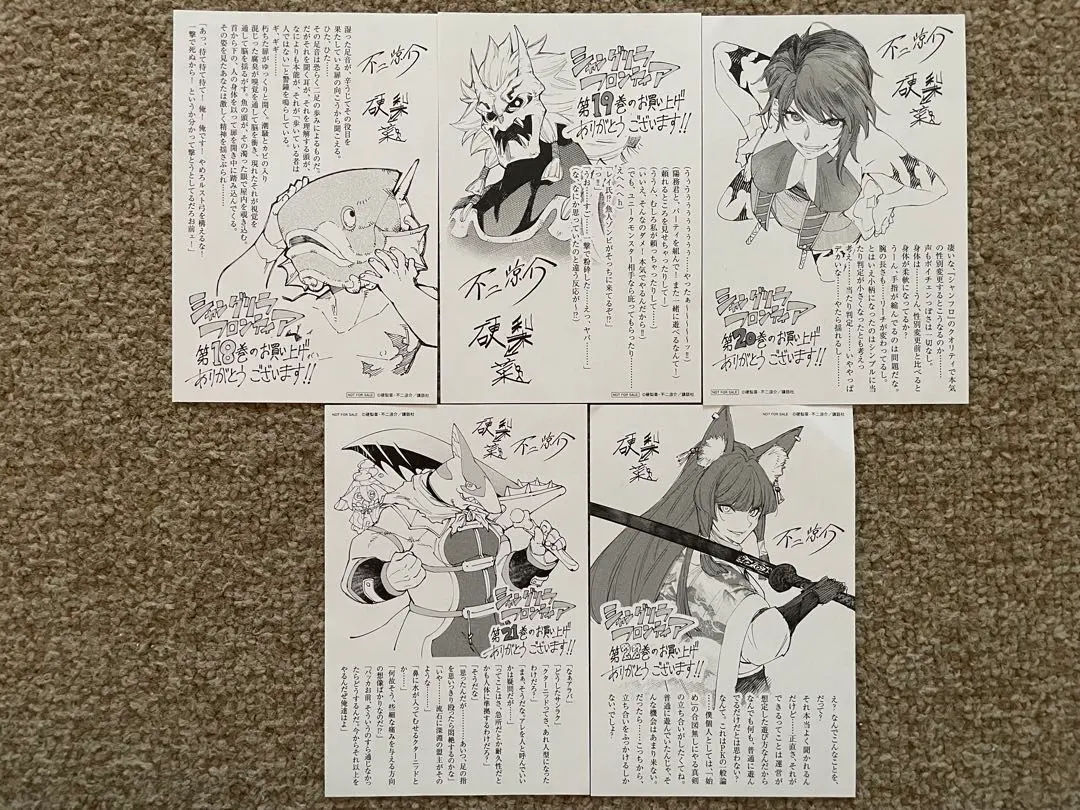 不二涼介
硬梨菜
湿った足音が、辛うじてその役目を
果たしている扉の向こうから聞こえる。
ひた、ひた……
その足音は恐らく二足の歩みによるものだ。
だがそれを聞く耳が、それを理解する頭が、
なによりも本能が、それが「歩いている者は
人ではない」と警鐘を鳴らしている。
ギ、ギギ……
朽ちた扉がゆっくりと開く。潮騒とカビの入り
混じった腐臭が嗅覚を通して脳を衝き、現れたそれが視覚を
通して脳を揺るがす。魚の頭が、その濁った眼で屋内を覗き込む。
首から下の、人の身体を以って扉を開き中に踏み込んでくる。
その姿を見たあなたは激しく精神を揺さぶられ……
「あっ、待て待て待て！ 俺！ 俺です！ やめろルスト弓を構えるな！
一撃で死ぬから！ というか分かって撃とうとしてるだろお前ェ！」
シャングリラ
フロンティア
第18巻のお買い上げ
ありがとうございます!!
NOT FOR SALE ©硬梨菜・不二涼介／講談社
シャングリラ
フロンティア
第19巻のお買い上げ
ありがとうございます!!
（陽務君と、パーティを組んで！また一緒に遊べるなんて！）
（頼れるところを見せちゃったりして！）
（ううん、むしろ私が頼っちゃったりして……）
（いいえ、そんなのダメ！本気でやるんだから!!）
（でも、ユニークモンスター相手なら庇ってもらったり……
えへへへh）
「レイ氏!? 魚人ゾンビがそっちに来てるぞ!?」
「っ!!」
（うお……すご……一撃で粉砕した……えっ、ヤバ……）
（な、なにか思っていたのと違う反応が〜!?）
不二涼介
硬梨菜
NOT FOR SALE ©硬梨菜・不二涼介／講談社
不二涼介
硬梨菜
凄いな、「シャンフロ」のクオリティで本気
の性別変更するとこうなるのか……
声もボイチェンっぽさは一切なし。
身体は……うん、性別変更前と比べると
身体が柔軟になってるか？
うーん、手指が縮んでるのは問題だな。
腕の長さも……リーチが変わってるし。
とはいえ小柄になったのはシンプルに当
たり判定が小さくなったとも考え
考え……当たり判定……いややっぱ
デカいな……やたら揺れるし……
シャングリラ
フロンティア
第20巻のお買い上げ
ありがとうございます!!
NOT FOR SALE ©硬梨菜・不二涼介／講談社
NOT FOR SALE ©硬梨菜・不二涼介／講談社
硬梨菜
不二涼介
シャングリラ
フロンティア
第21巻のお買い上げ
ありがとうございます!!
「なぁアラバ」
「どうしたサンラク」
「クターニッドってさ、あれ人型になった
わけだろ？」
「まぁ、そうだな。アレを人と呼んでいい
かは疑問だが……」
「ってことはさ、急所だとか耐久性だと
かも人体に準拠するわけだろ？」
「そうだな」
「思ったんだが……あいつ、足の指
を思いっきり殴ったら悶絶するのかな」
「いや……流石に深淵の盟主がその
ような……」
「鼻に水が入ってむせるクターニッドと
か……」
「何故そう、些細な痛みを与える方向
の想像ばかりなのだ!?」
「バッカお前、そういうのすら通じなかっ
たらどうするんだ。今からそれ以上を
やるんだぜ俺達はよ」
NOT FOR SALE ©硬梨菜・不二涼介／講談社
硬梨菜
不二涼介
シャングリラ
フロンティア
第22巻のお買い上げ
ありがとうございます!!
え？ なんでこんなことを、
だって？
それ本当よく聞かれるん
だけど……正直さ、それが
できるってことは運営が
想定した遊び方なんだから
なんでも何も、普通に遊ん
でるだけだとは思わない？
なんて。これはＰＫの一般論
……僕個人としては、「始
め」の合図無しにやる真剣
の立ち合いがしたくてね。
普通に遊んでいたんじゃ、そ
んな機会はあまり来ない。
だったら……こっちから、
立ち合いをふっかけるしか
ない、でしょ？